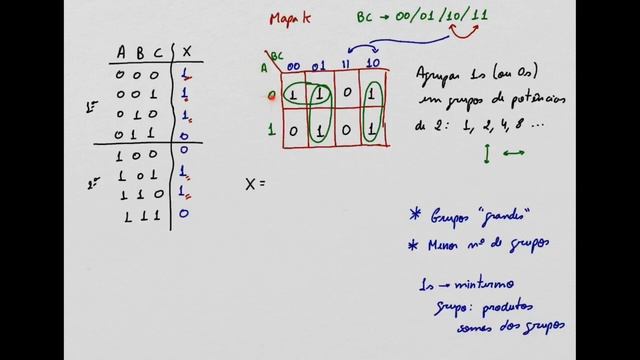 Mapa k
BC → 00/01/10/11
A B C X
0 0 0 1
0 0 1 1
0 1 0 1
0 1 1 0
1 0 0 0
1 0 1 1
1 1 0 1
1 1 1 0
1ª
2ª
BC
A
00 01 11 10
0 1 1 0 1
1 0 1 0 1
X =
Agrupar 1s (ou 0s)
em grupos de potências
de 2: 1, 2, 4, 8 ...
* Grupos "grandes"
* Menor nº de grupos
1s → mintermo
grupo: produtos
somas dos grupos